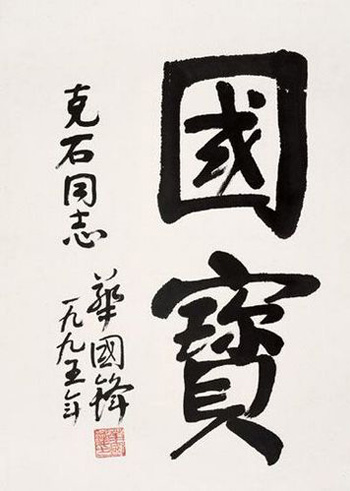 國寶
克石同志
華國鋒
一九九五年